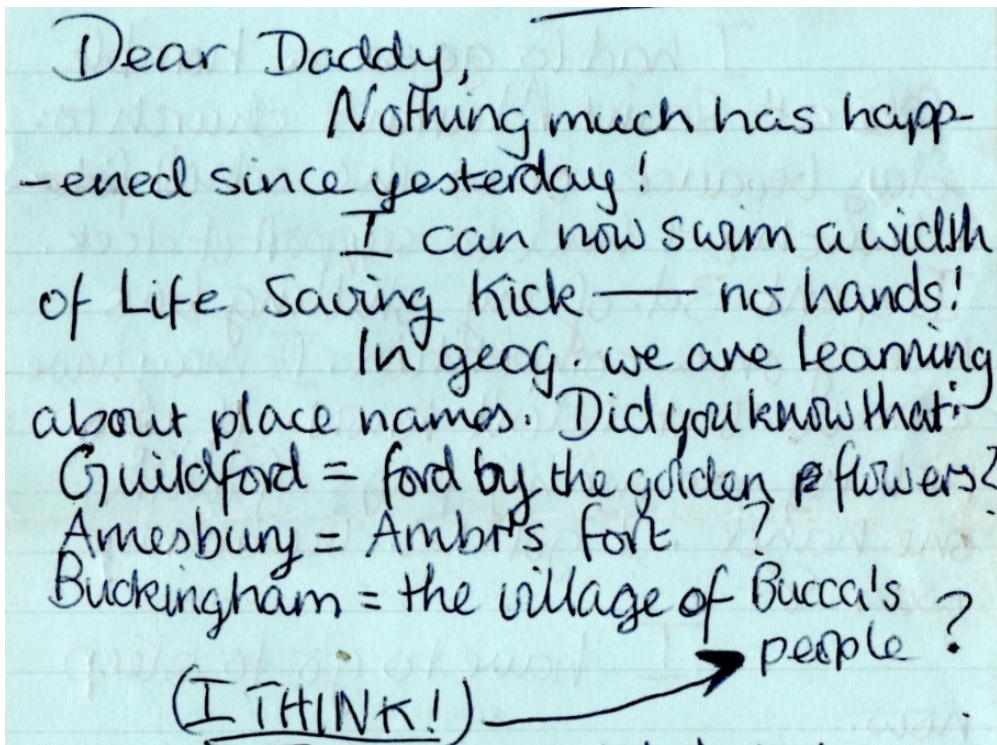 Dear Daddy,
Nothing much has happ-
-ened since yesterday!
I can now swim a width
of Life Saving Kick — no hands!
In geog. we are learning
about place names. Did you know that:-
Guildford = ford by the golden flowers?
Amesbury = Ambr's fort ?
Buckingham = the village of Bucca's
people ?
(I THINK!)